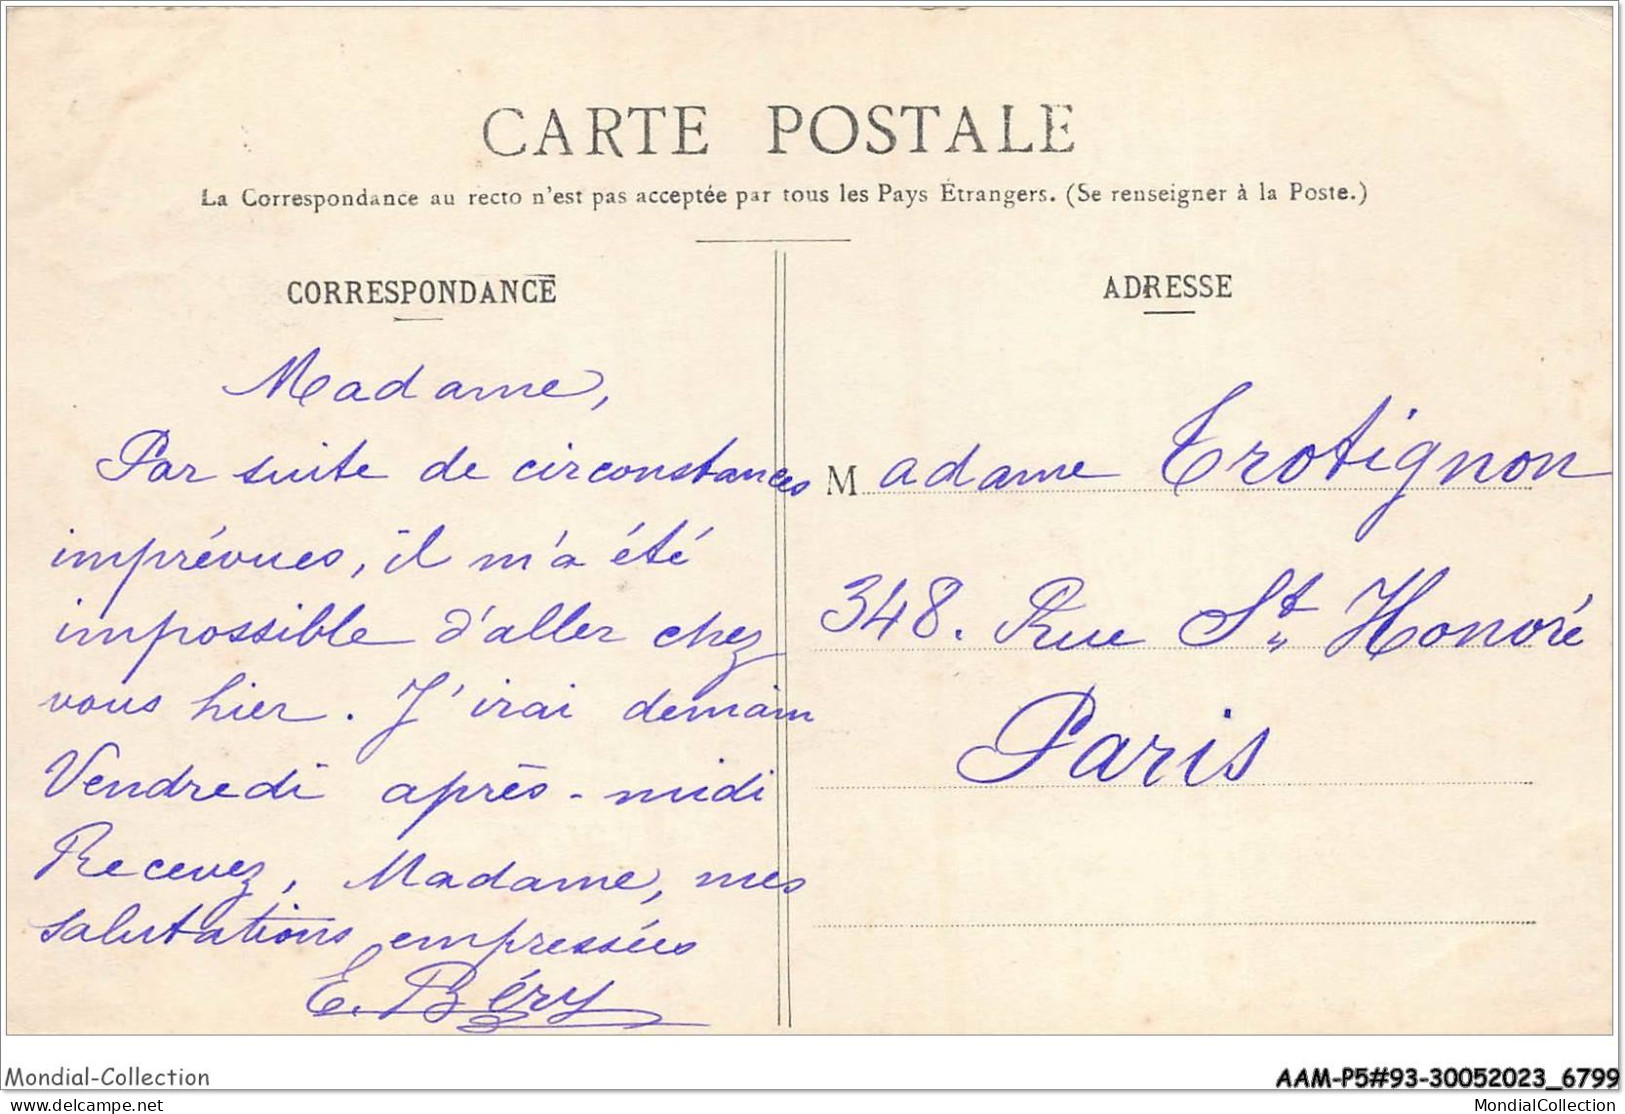 CARTE POSTALE
La Correspondance au recto n'est pas acceptée par tous les Pays Étrangers. (Se renseigner à la Poste.)
CORRESPONDANCE
Madame,
Par suite de circonstances
imprévues, il m'a été
impossible d'aller chez
vous hier. J'irai demain
Vendredi après-midi
Recevez, Madame, mes
salutations empressées
E. Béry
ADRESSE
Madame Trotignon
348. Rue St Honoré
Paris
Mondial-Collection
AAM-P5#93-30052023_6799
delcampe.net
MondialCollection